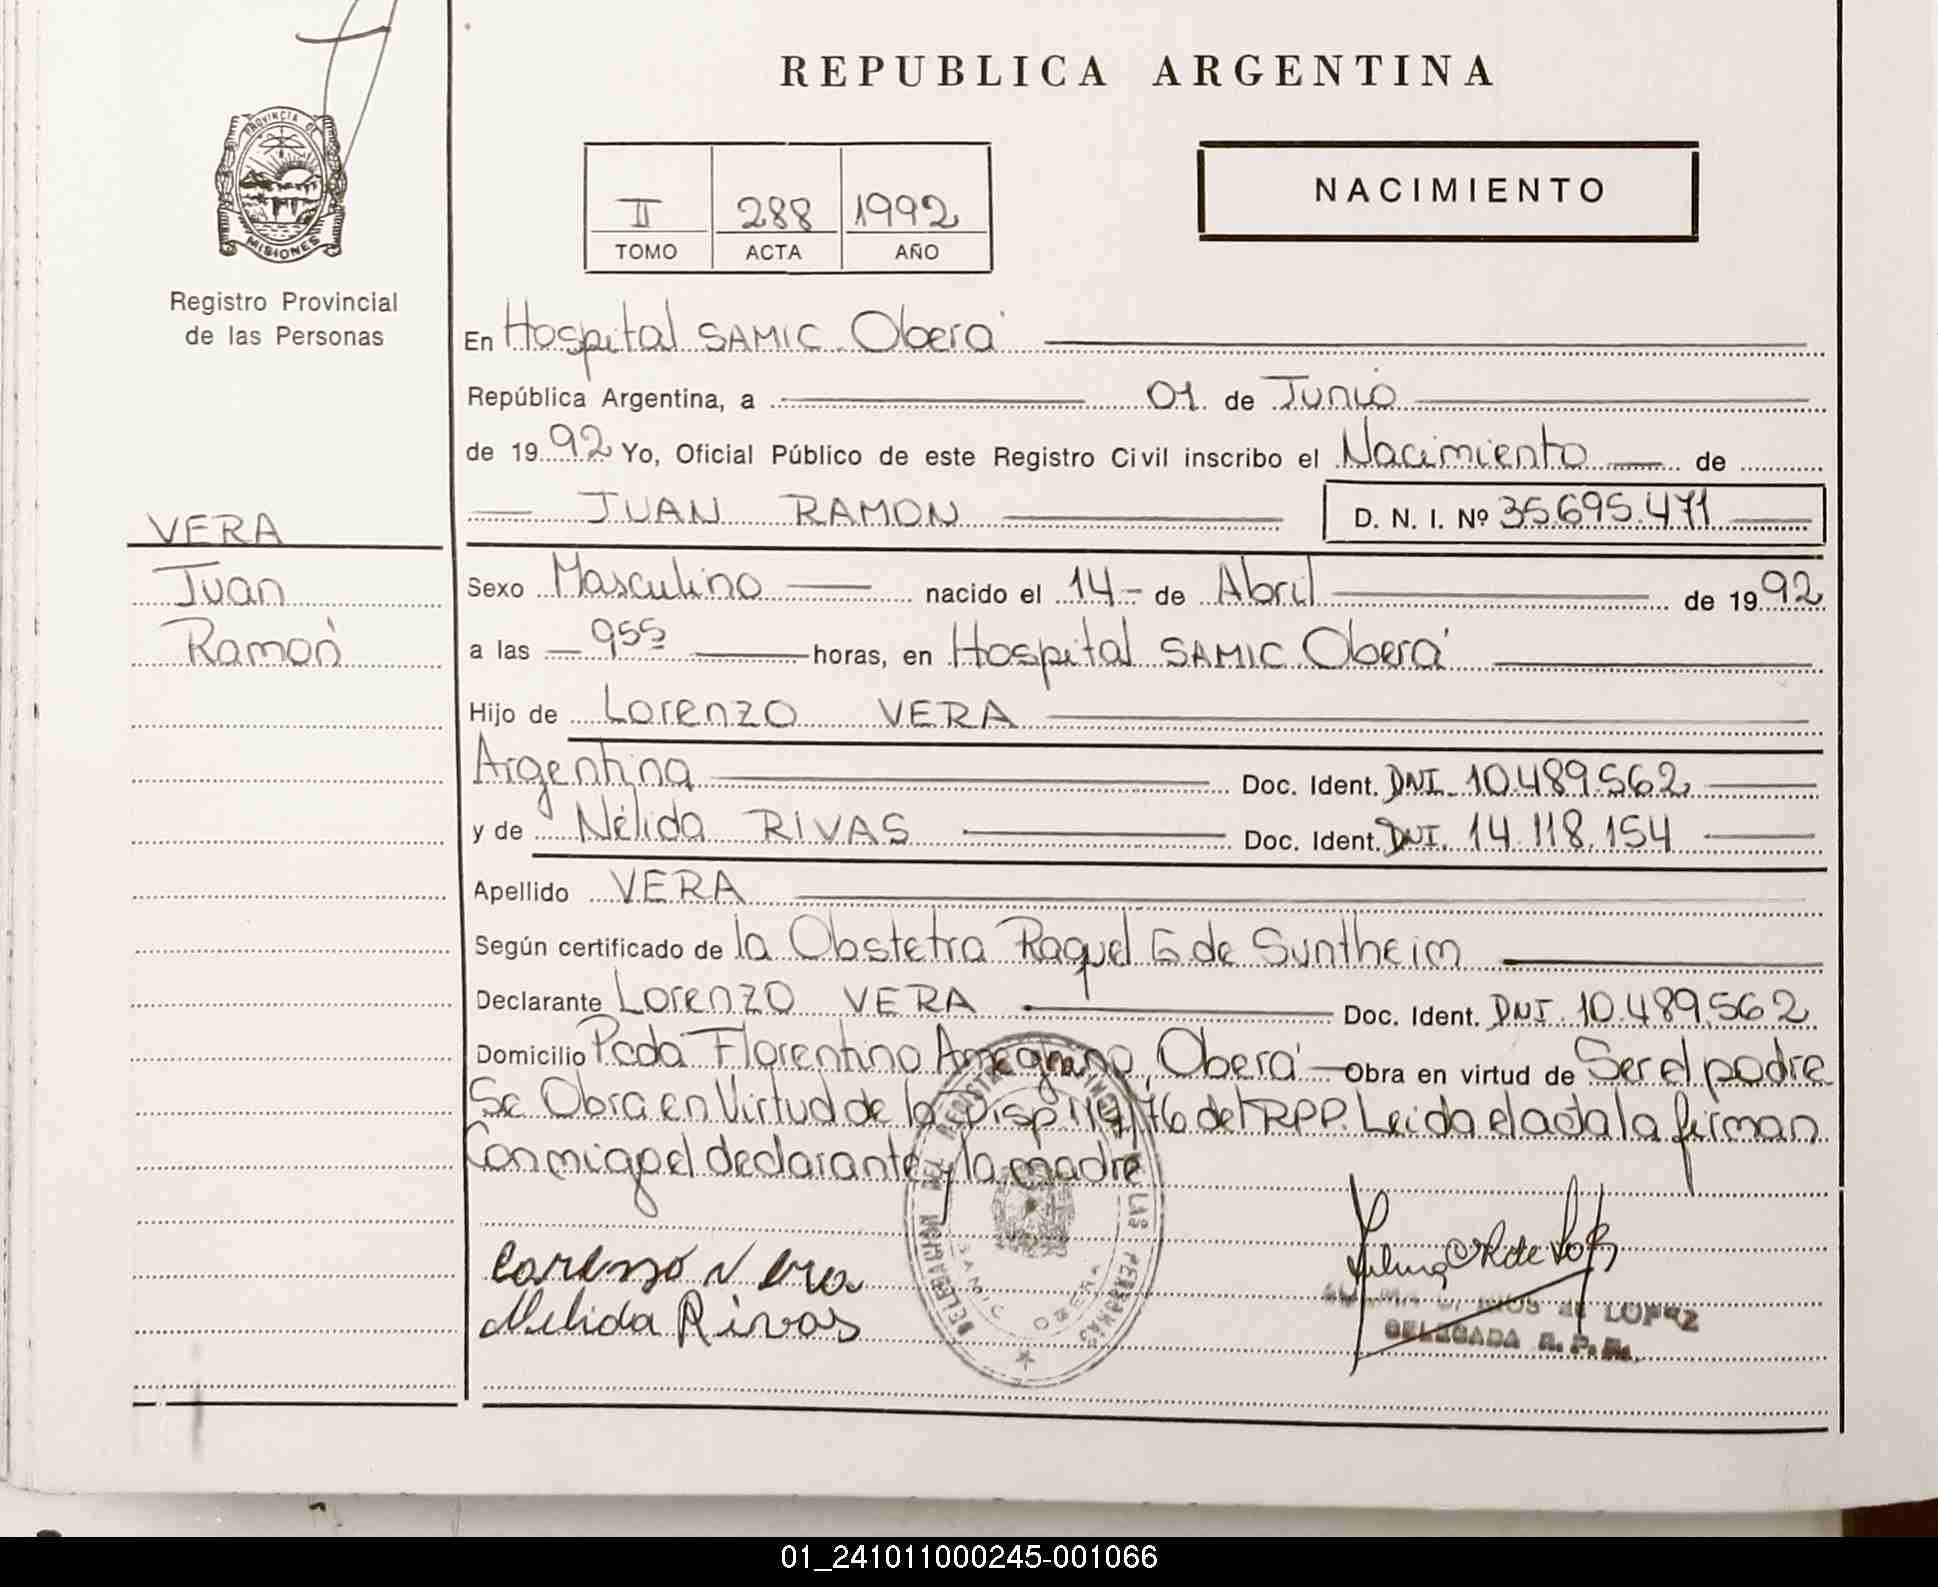 REPUBLICA ARGENTINA
PROVINCIA DE MISIONES
Registro Provincial
de las Personas
II 288 1992
TOMO ACTA AÑO
NACIMIENTO
En Hospital SAMIC Oberá
República Argentina, a 01 de Junio
de 1992 Yo, Oficial Público de este Registro Civil inscribo el Nacimiento de
JUAN RAMON D. N. I. Nº 35.695.471
VERA
Juan
Ramón
Sexo Masculino nacido el 14 - de Abril de 1992
a las 955 horas, en Hospital SAMIC Oberá
Hijo de Lorenzo VERA
Argentina Doc. Ident. DNI. 10.489.562
y de Nélida RIVAS Doc. Ident. DNI. 14.118.154
Apellido VERA
Según certificado de la Obstetra Raquel G de Suntheim
Declarante Lorenzo VERA Doc. Ident. DNI. 10.489.562
Domicilio Pcda Florentino Ameghino, Oberá Obra en virtud de Ser el padre
Se Obra en Virtud de la Disp 119/76 del RPP. Leida el acta la firman
Conmigo el declarante y la madre
Lorenzo Vera
Nelida Rivas
DELEGACION DEL REGISTRO PROVINCIAL DE LAS PERSONAS
SAMIC OBERA
RIOS de LOPEZ
DELEGADA R. P. P.
01_241011000245-001066